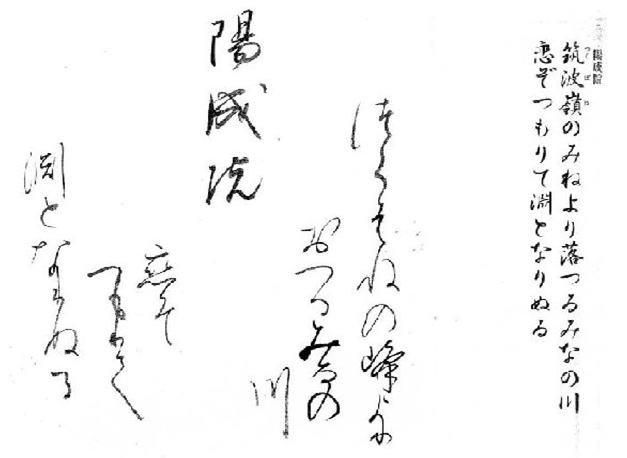 陽成院
筑波嶺のみねより落つるみなの川
恋ぞつもりて淵となりぬる
つくはねの峰より
おつるみなの
川
陽成院
恋そ
つもりて
淵となりぬる